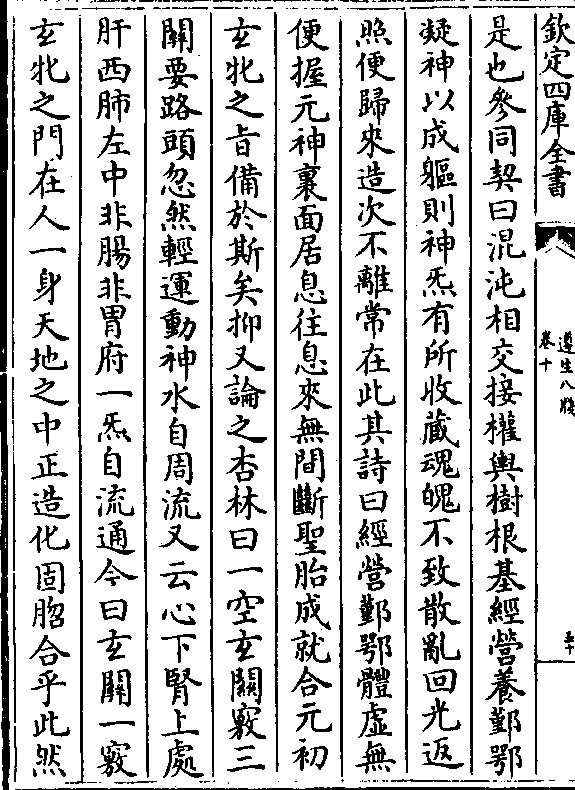 欽定四庫全書
遵生八牋
卷十
五十
是也參同契曰混沌相交接權輿樹根基經營養鄞鄂
凝神以成軀則神炁有所收藏魂魄不致散亂回光返
照便歸來造次不離常在此其詩曰經營鄞鄂體虛無
便握元神裏面居息往息來無間斷聖胎成就合元初
玄牝之旨備於斯矣抑又論之杏林曰一空玄關竅三
關要路頭忽然輕運動神水自周流又云心下腎上處
肝西肺左中非腸非胃府一炁自流通今曰玄關一竅
玄牝之門在人一身天地之中正造化固胞合乎此然